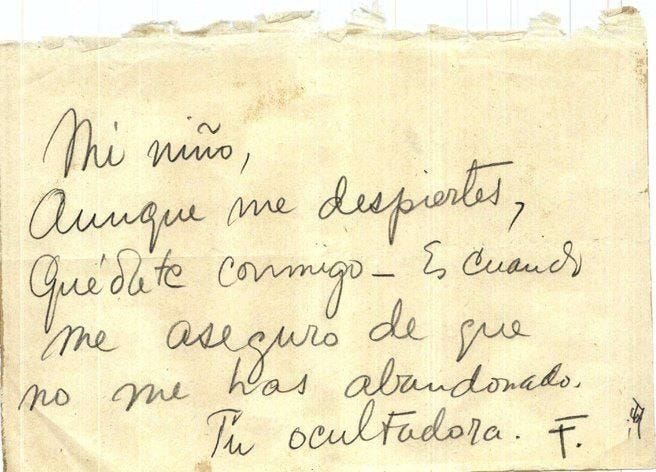 Mi niño,
Aunque me despiertes,
Quédate conmigo – Es cuando
me aseguro de que
no me has abandonado.
Tu ocultadora. F.